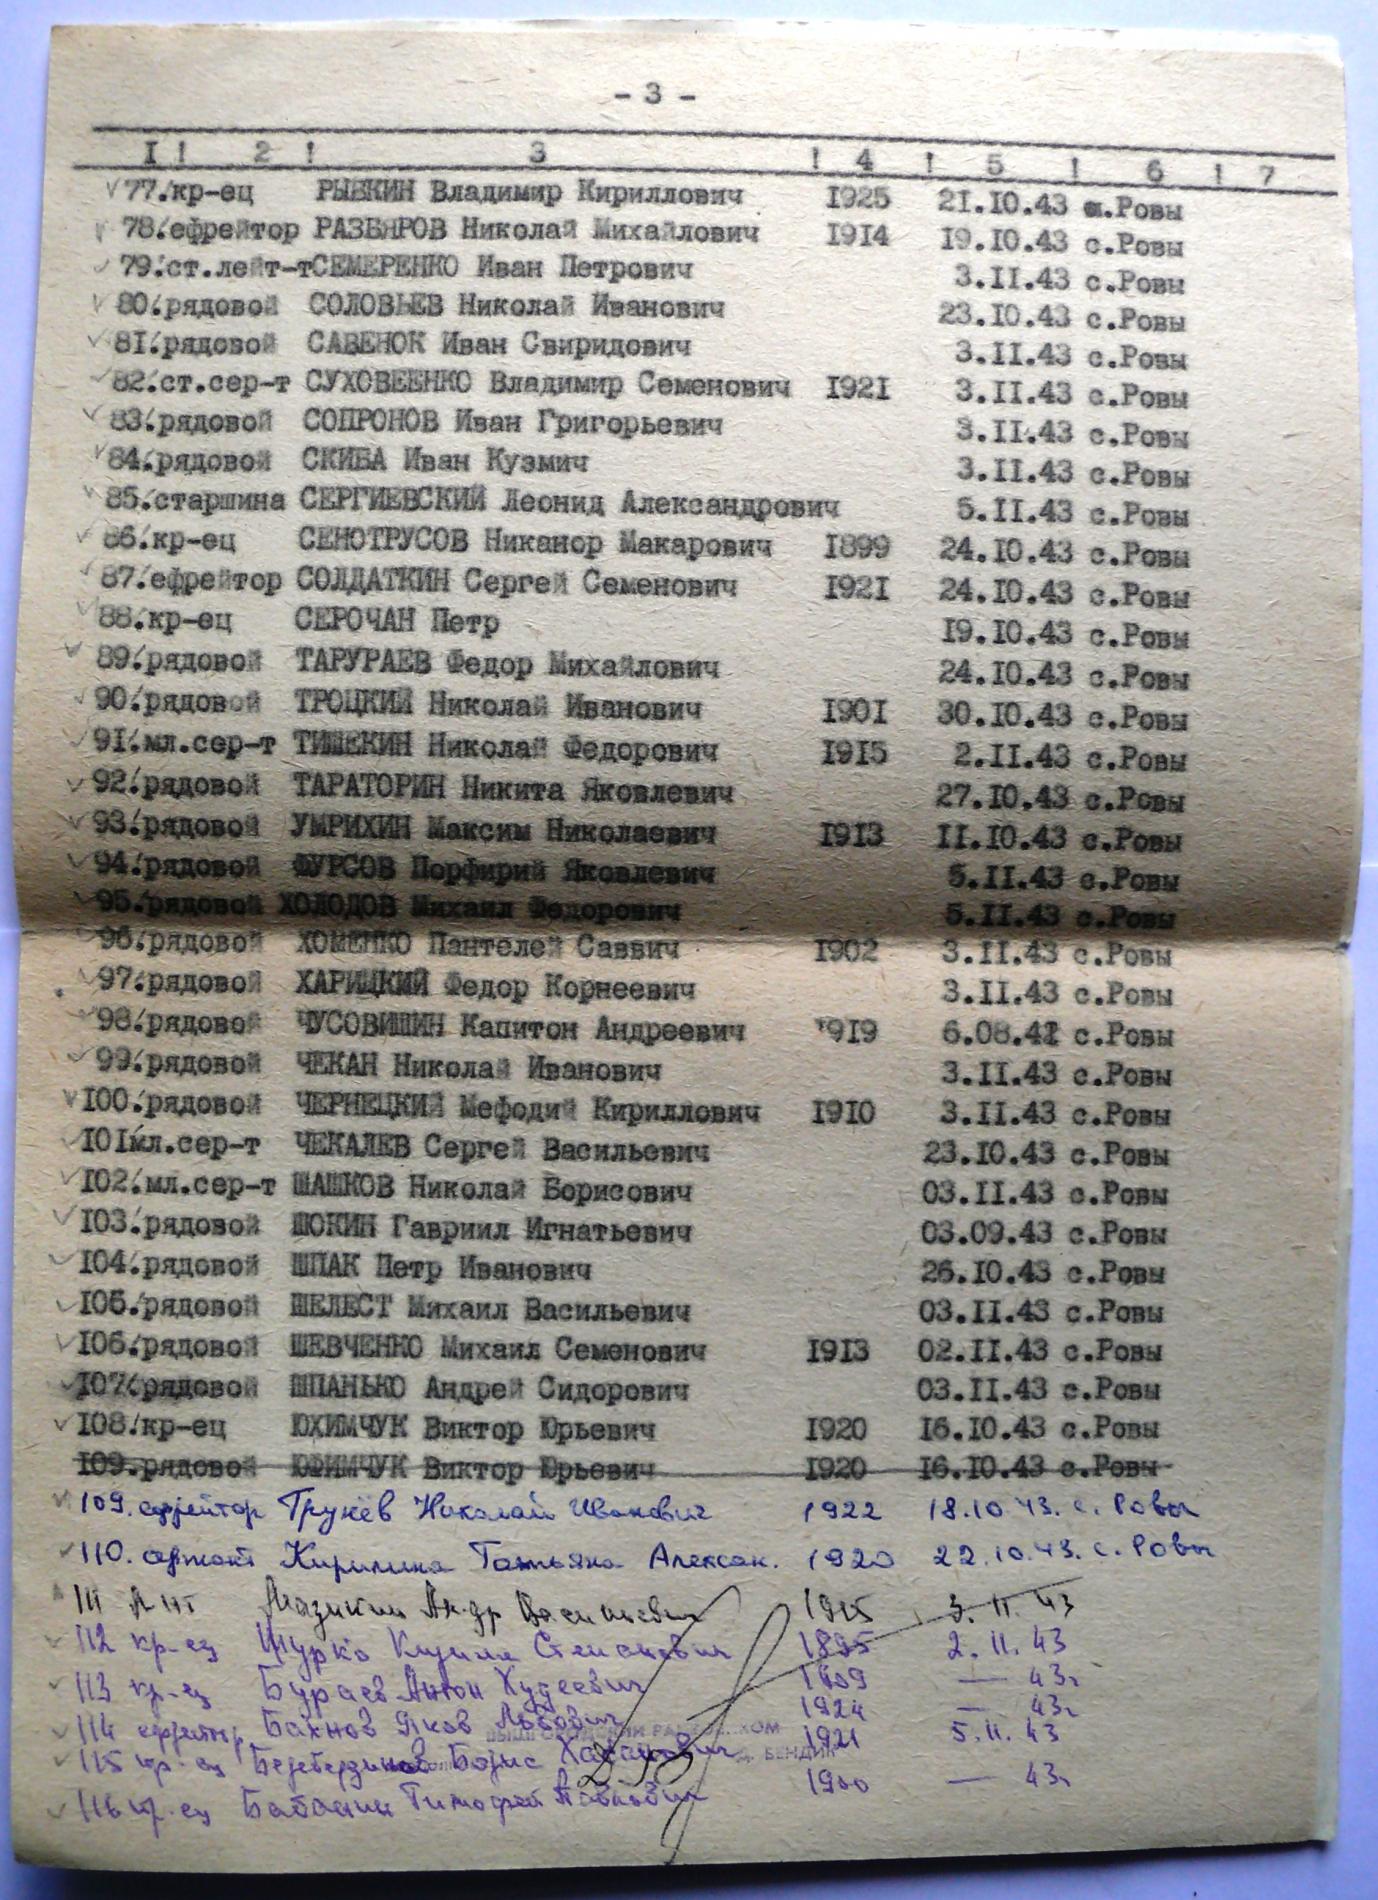 - 3 -
I ! 2 ! 3 ! 4 ! 5 ! 6 ! 7
77. кр-ец РЫБКИН Владимир Кириллович 1925 21.10.43 с.Ровы
78. ефрейтор РАЗБЯРОВ Николай Михайлович I9I4 I9.I0.43 с.Ровы
79. ст.лейт-т СЕМЕРЕНКО Иван Петрович 3.II.43 с.Ровы
80. рядовой СОЛОВЬЕВ Николай Иванович 23.I0.43 с.Ровы
8I. рядовой САВЕНОК Иван Свиридович 3.II.43 с.Ровы
82. ст.сер-т СУХОВЕЕНКО Владимир Семенович I92I 3.II.43 с.Ровы
83. рядовой СОПРОНОВ Иван Григорьевич 3.II.43 с.Ровы
84. рядовой СКИБА Иван Кузмич 3.II.43 с.Ровы
85. старшина СЕРГИЕВСКИЙ Леонид Александрович 5.II.43 с.Ровы
86. кр-ец СЕНОТРУСОВ Никанор Макарович I899 24.I0.43 с.Ровы
87. ефрейтор СОЛДАТКИН Сергей Семенович I92I 24.I0.43 с.Ровы
88. кр-ец СЕРОЧАН Петр I9.I0.43 с.Ровы
89. рядовой ТАРУРАЕВ Федор Михайлович 24.I0.43 с.Ровы
90. рядовой ТРОЦКИЙ Николай Иванович I90I 30.I0.43 с.Ровы
9I. мл.сер-т ТИШЕКИН Николай Федорович I9I5 2.II.43 с.Ровы
92. рядовой ТАРАТОРИН Никита Яковлевич 27.I0.43 с.Ровы
93. рядовой УМРИХИН Максим Николаевич I9I3 II.I0.43 с.Ровы
94. рядовой ФУРСОВ Порфирий Яковлевич 5.II.43 с.Ровы
95. рядовой ХОЛОДОВ Михаил Федорович 5.II.43 с.Ровы
96. рядовой ХОМЕНКО Пантелей Саввич I902 3.II.43 с.Ровы
97. рядовой ХАРИЦКИЙ Федор Корнеевич 3.II.43 с.Ровы
98. рядовой ЧУСОВИШИН Капитон Андреевич I9I9 6.08.4I с.Ровы
99. рядовой ЧЕКАН Николай Иванович 3.II.43 с.Ровы
I00. рядовой ЧЕРНЕЦКИЙ Мефодий Кириллович I9I0 3.II.43 с.Ровы
I0I мл.сер-т ЧЕКАЛЕВ Сергей Васильевич 23.I0.43 с.Ровы
I02. мл.сер-т ШАШКОВ Николай Борисович 03.II.43 с.Ровы
I03. рядовой ШОКИН Гавриил Игнатьевич 03.09.43 с.Ровы
I04. рядовой ШПАК Петр Иванович 26.I0.43 с.Ровы
I05. рядовой ШЕЛЕСТ Михаил Васильевич 03.II.43 с.Ровы
I06. рядовой ШЕВЧЕНКО Михаил Семенович I9I3 02.II.43 с.Ровы
I07. рядовой ШПАНЬКО Андрей Сидорович 03.II.43 с.Ровы
I08. кр-ец ЮХИМЧУК Виктор Юрьевич I920 I6.I0.43 с.Ровы
I09. рядовой ЮФИМЧУК Виктор Юрьевич I920 I6.I0.43 с.Ровы
109. ефрейтор Грунёв Николай Иванович 1922 18.10.43. с. Ровы
110. сержант Кирилина Татьяна Алексан. 1920 22.10.43. с. Ровы
111 Л-нт Мазикин Ан-др Васильевич 1915 3.11.43
112 кр-ец Щурко Кирилл Степанович 1895 2.11.43
113 кр-ец Бураев Антон 1909 — 43г
114 ефрейтор Бахнов Яков Львович 1924 — 43г
115 кр-ец Борис 1921 5.11.43
116 кр-ец Тимофей Павлович 1900 — 43г